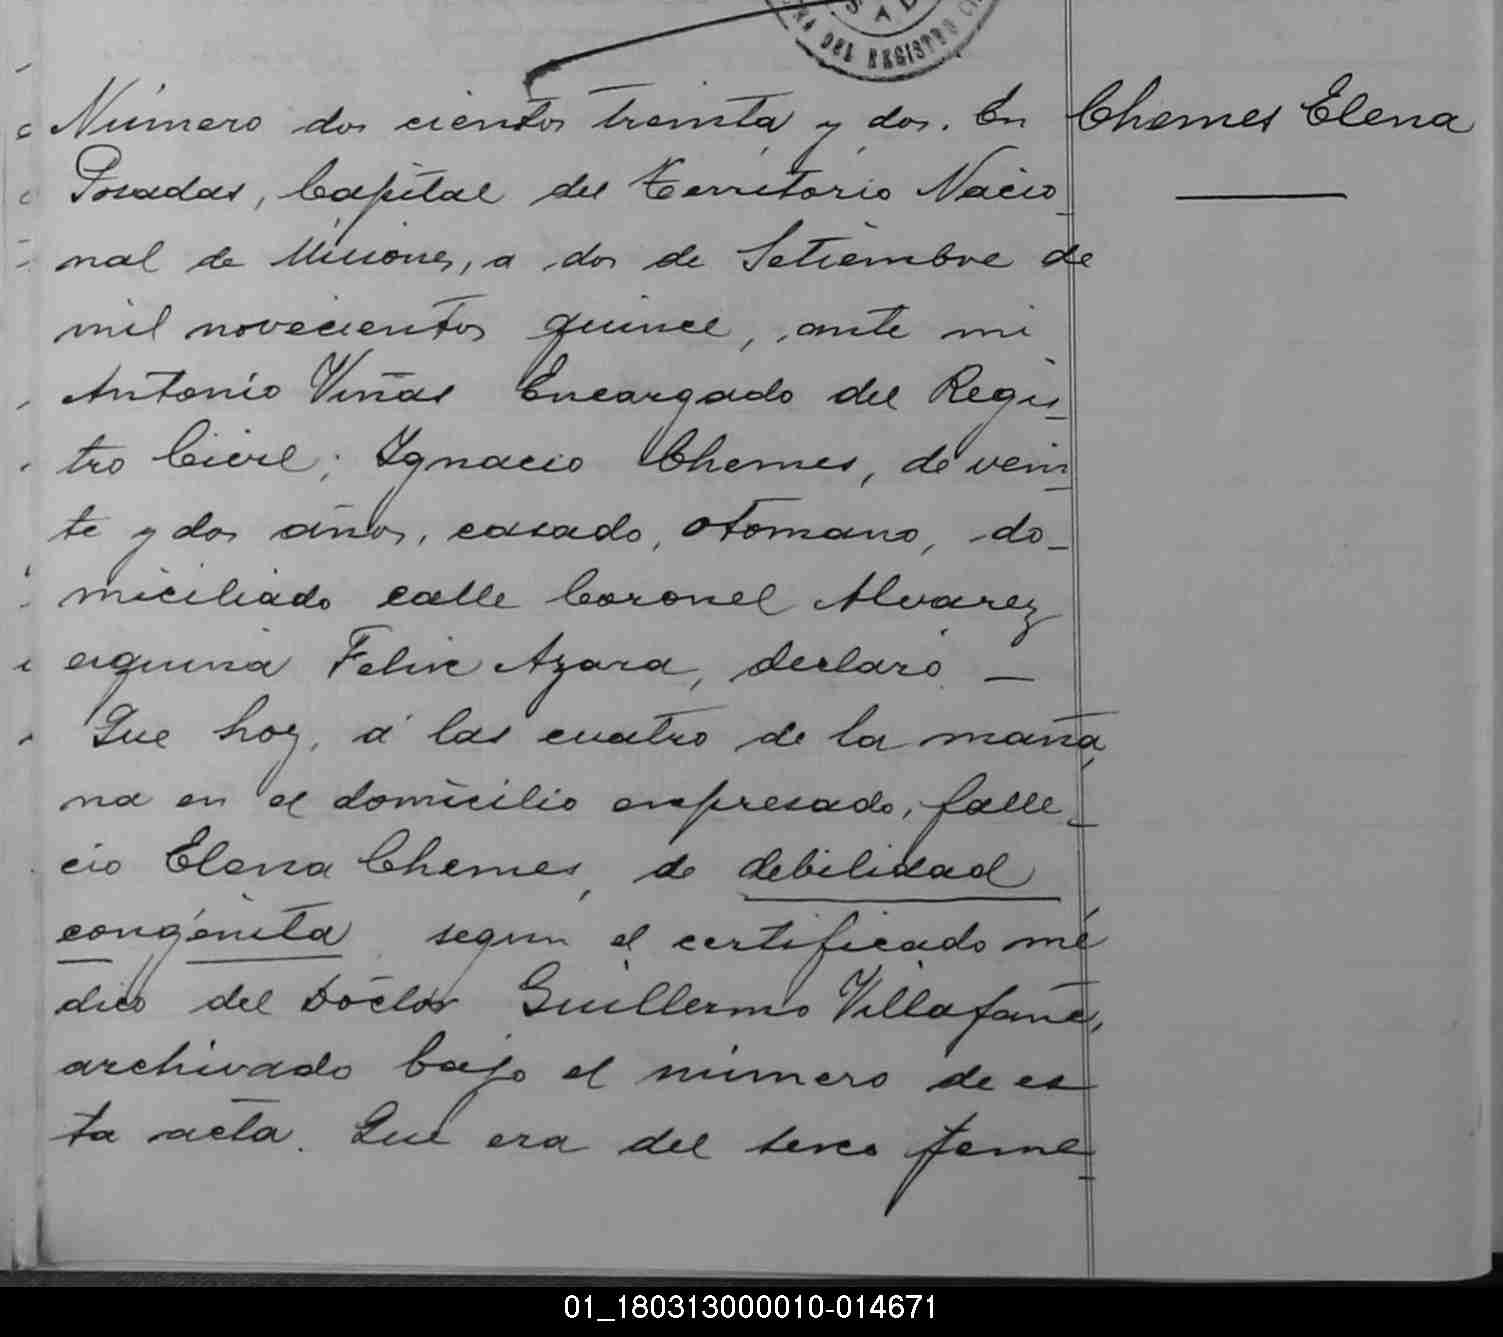 DEL REGISTRO
Número dos cientos treinta y dos. En
Chemes Elena
Posadas, Capital del Territorio Nacio
nal de Misiones, a dos de Setiembre de
mil novecientos quince, ante mi
Antonio Viñas Encargado del Regis
tro Civil; Ignacio Chemes, de vein
te y dos años, casado, otomano, do-
miciliado calle Coronel Alvarez
esquina Felix Azara, declaró —
Que hoy, á las cuatro de la maña
na en el domicilio expresado, falle-
cio Elena Chemes, de debilidad
congénita segun el certificado mé
dico del Doctor Guillermo Villafañe,
archivado bajo el número de es
ta acta. Que era del sexo feme-
01_180313000010-014671